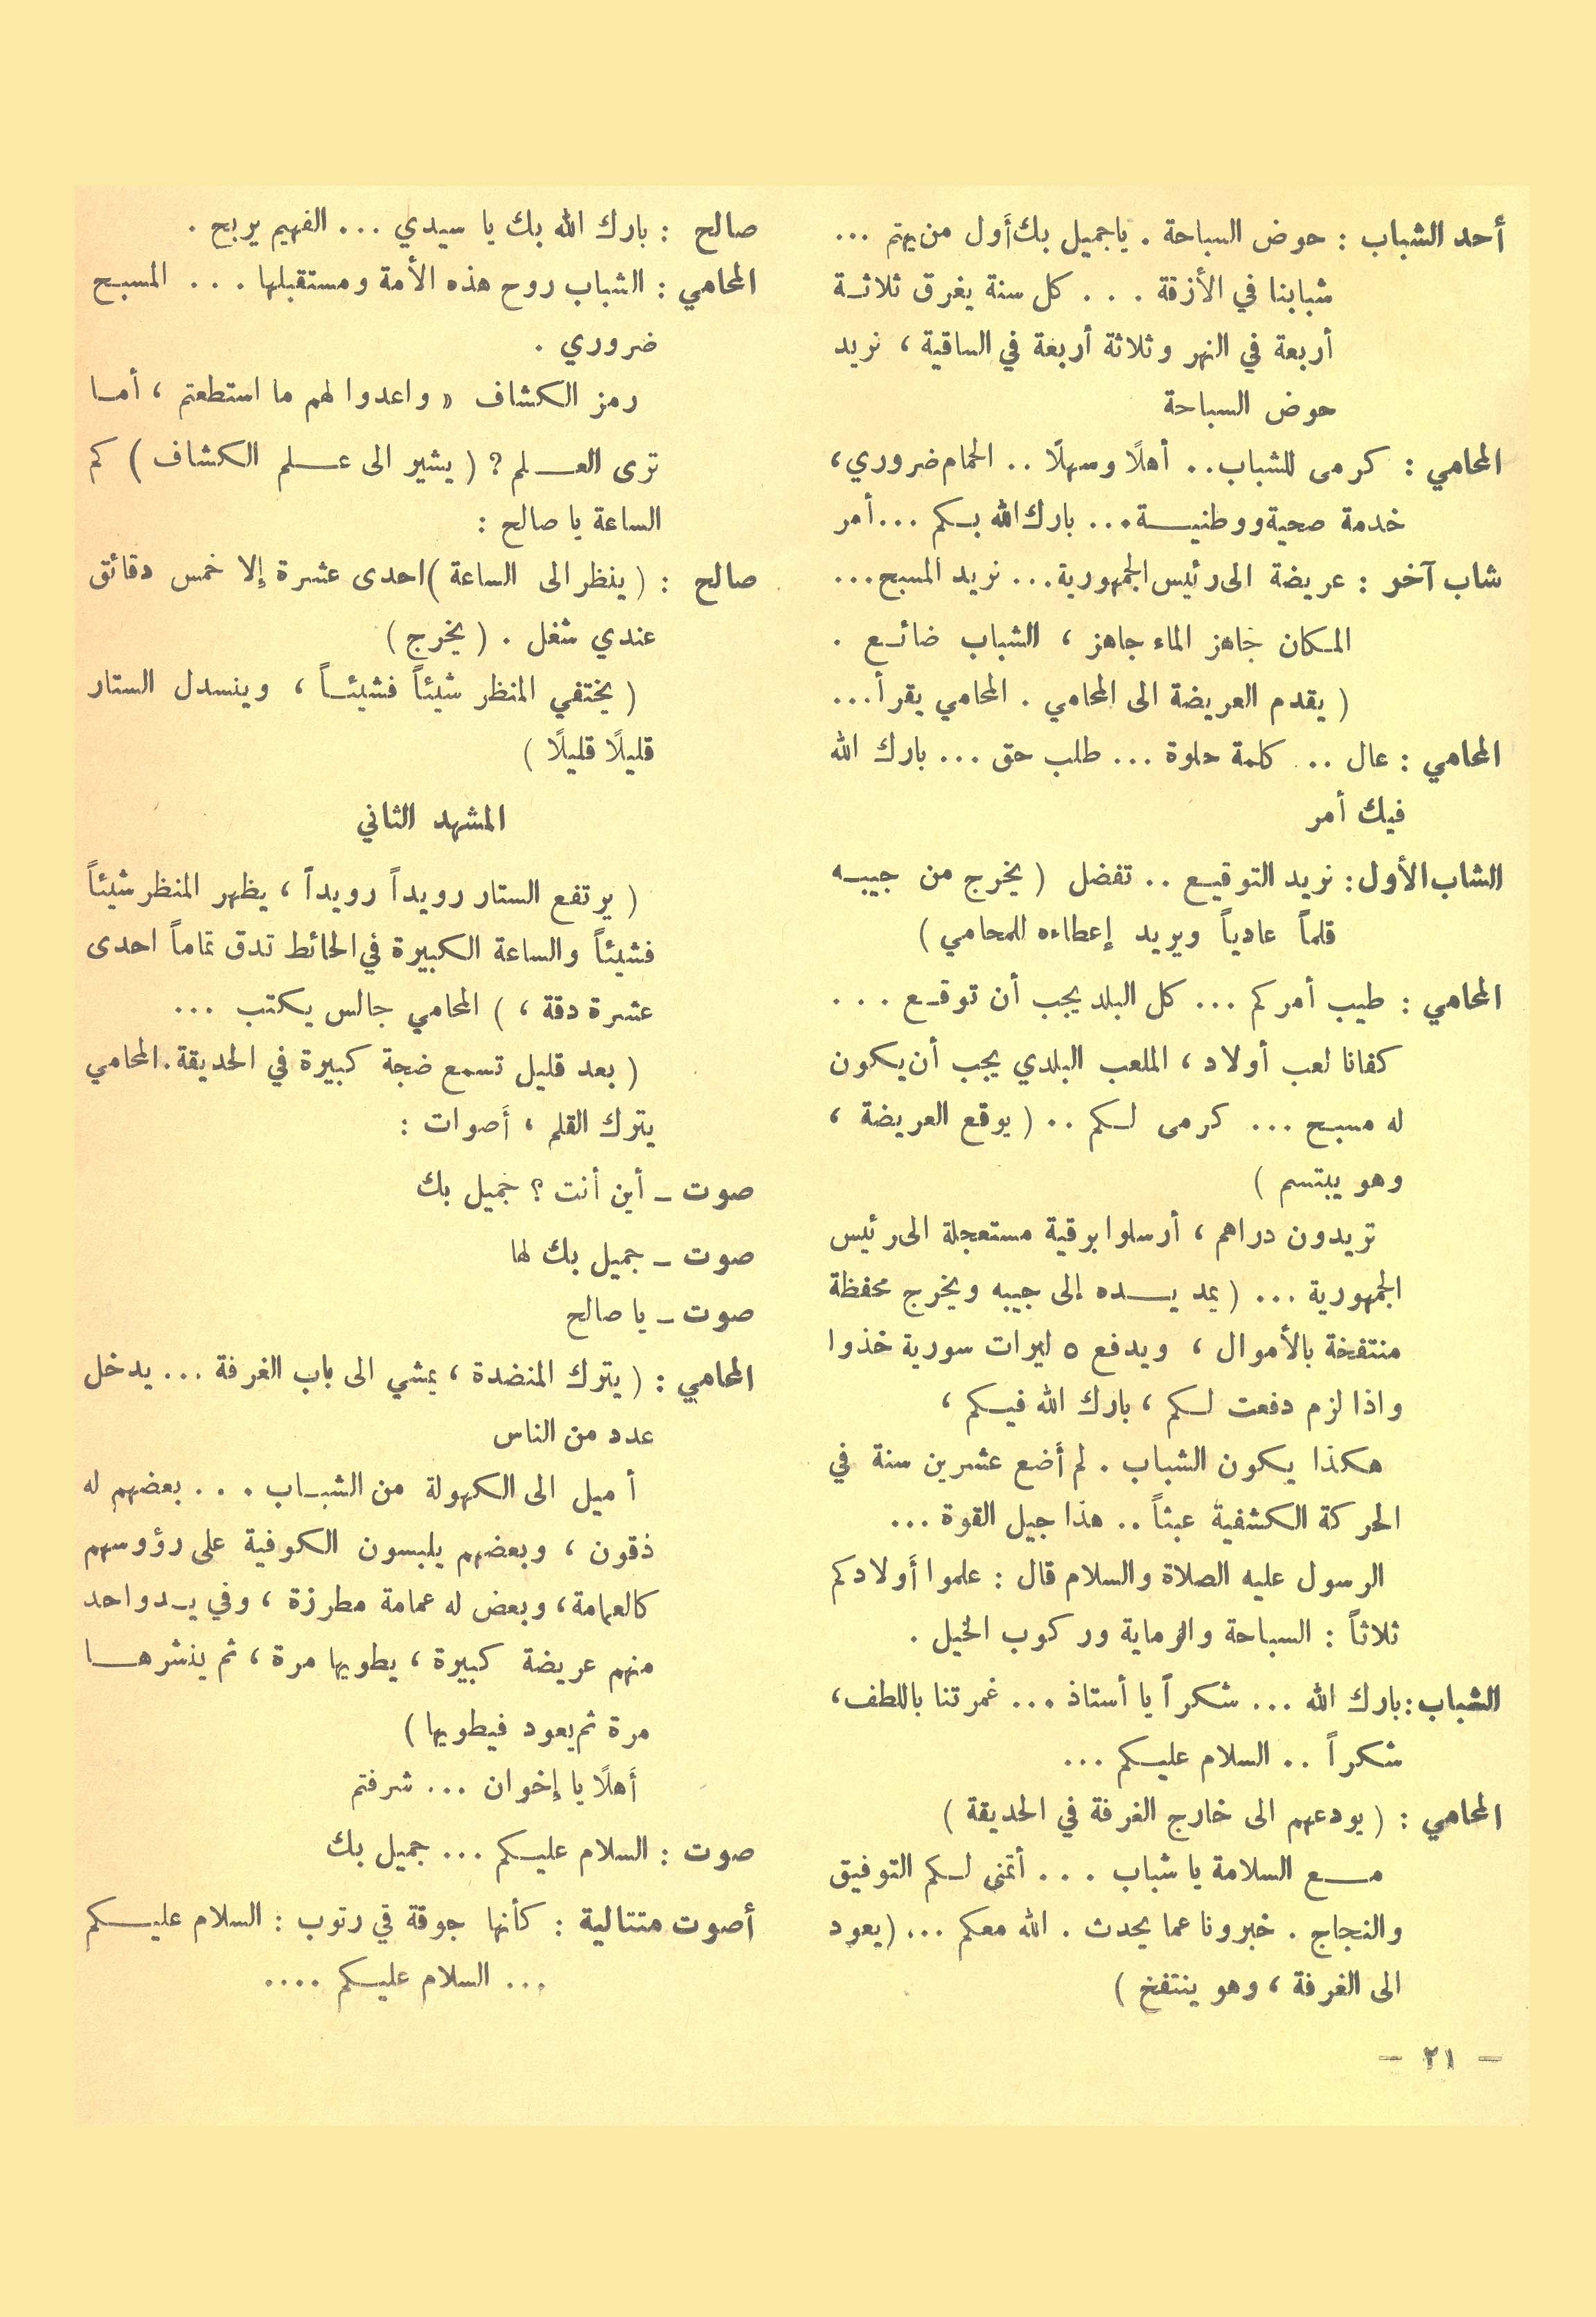 أحد الشباب : حوض السباحة . ياجميل بك أول من يهتم ...
شبابنا في الأزقة . . . كل سنة يغرق ثلاثة
أربعة في النهر وثلاثة أربعة في الساقية ، نريد
حوض السباحة
المحامي : كرمى للشباب .. أهلًا وسهلًا .. الحمام ضروري ،
خدمة صحية ووطنية ... بارك الله بكم ... أمر
شاب آخر : عريضة الى رئيس الجمهورية ... نريد المسبح ...
المكان جاهز الماء جاهز ، الشباب ضائع .
( يقدم العريضة الى المحامي . المحامي يقرأ ...
المحامي : عال .. كلمة حلوة ... طلب حق ... بارك الله
فيك أمر
الشاب الأول : نريد التوقيع .. تفضل ( يخرج من جيبه
قلماً عادياً ويريد إعطاءه للمحامي )
المحامي : طيب أمركم ... كل البلد يجب أن توقع . . .
كفانا لعب أولاد ، الملعب البلدي يجب أن يكون
له مسبح ... كرمى لكم .. ( يوقع العريضة ،
وهو يبتسم )
تريدون دراهم ، أرسلوا برقية مستعجلة الى رئيس
الجمهورية ... ( يمد يده إلى جيبه ويخرج محفظة
منتفخة بالأموال ، ويدفع ٥ ليرات سورية خذوا
واذا لزم دفعت لكم ، بارك الله فيكم ،
هكذا يكون الشباب . لم أضع عشرين سنة في
الحركة الكشفية عبثاً .. هذا جيل القوة ...
الرسول عليه الصلاة والسلام قال : علموا أولادكم
ثلاثاً : السباحة والرماية وركوب الخيل .
الشباب : بارك الله ... شكراً يا أستاذ ... غمرتنا باللطف ،
شكراً .. السلام عليكم ...
المحامي : ( يودعهم الى خارج الغرفة في الحديقة )
مع السلامة يا شباب . . . أتمنى لكم التوفيق
والنجاح . خبرونا عما يحدث . الله معكم ... ( يعود
الى الغرفة ، وهو ينتفخ )
صالح : بارك الله بك يا سيدي ... الفهيم يربح .
المحامي : الشباب روح هذه الأمة ومستقبلها . . . المسبح
ضروري .
رمز الكشاف « واعدوا لهم ما استطعتم ، أما
ترى العلم ? ( يشير الى علم الكشاف ) كم
الساعة يا صالح :
صالح : ( ينظر الى الساعة ) احدى عشرة إلا خمس دقائق
عندي شغل . ( يخرج )
( يختفي المنظر شيئاً فشيئاً ، وينسدل الستار
قليلًا قليلًا )
المشهد الثاني
( يرتفع الستار رويداً رويداً ، يظهر المنظر شيئاً
فشيئاً والساعة الكبيرة في الحائط تدق تماماً احدى
عشرة دقة ، ) المحامي جالس يكتب ...
( بعد قليل تسمع ضجة كبيرة في الحديقة . المحامي
يترك القلم ، أصوات :
صوت ـ أين أنت ؟ جميل بك
صوت ـ جميل بك لها
صوت ـ يا صالح
المحامي : ( يترك المنضدة ، يمشي الى باب الغرفة ... يدخل
عدد من الناس
أميل الى الكهولة من الشباب . . . بعضهم له
ذقون ، وبعضهم يلبسون الكوفية على رؤوسهم
كالعمامة ، وبعض له عمامة مطرزة ، وفي يد واحد
منهم عريضة كبيرة ، يطويها مرة ، ثم ينشرها
مرة ثم يعود فيطويها )
أهلًا يا إخوان ... شرفتم
صوت : السلام عليكم ... جميل بك
أصوت متتالية : كأنها جوقة في رتوب : السلام عليكم
... السلام عليكم ....
– ٢١ –